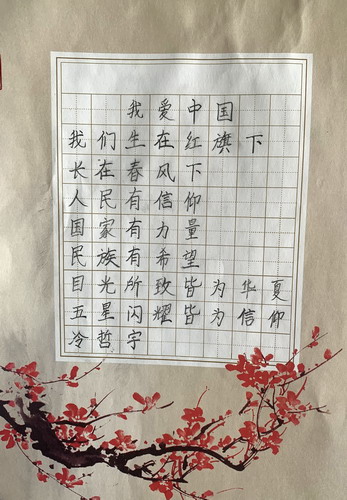 我爱中国
我们生在红旗下
长在春风下
人民有信仰
国家有力量
民族有希望
目光所致皆为华夏
五星闪耀皆为信仰
冷哲宇